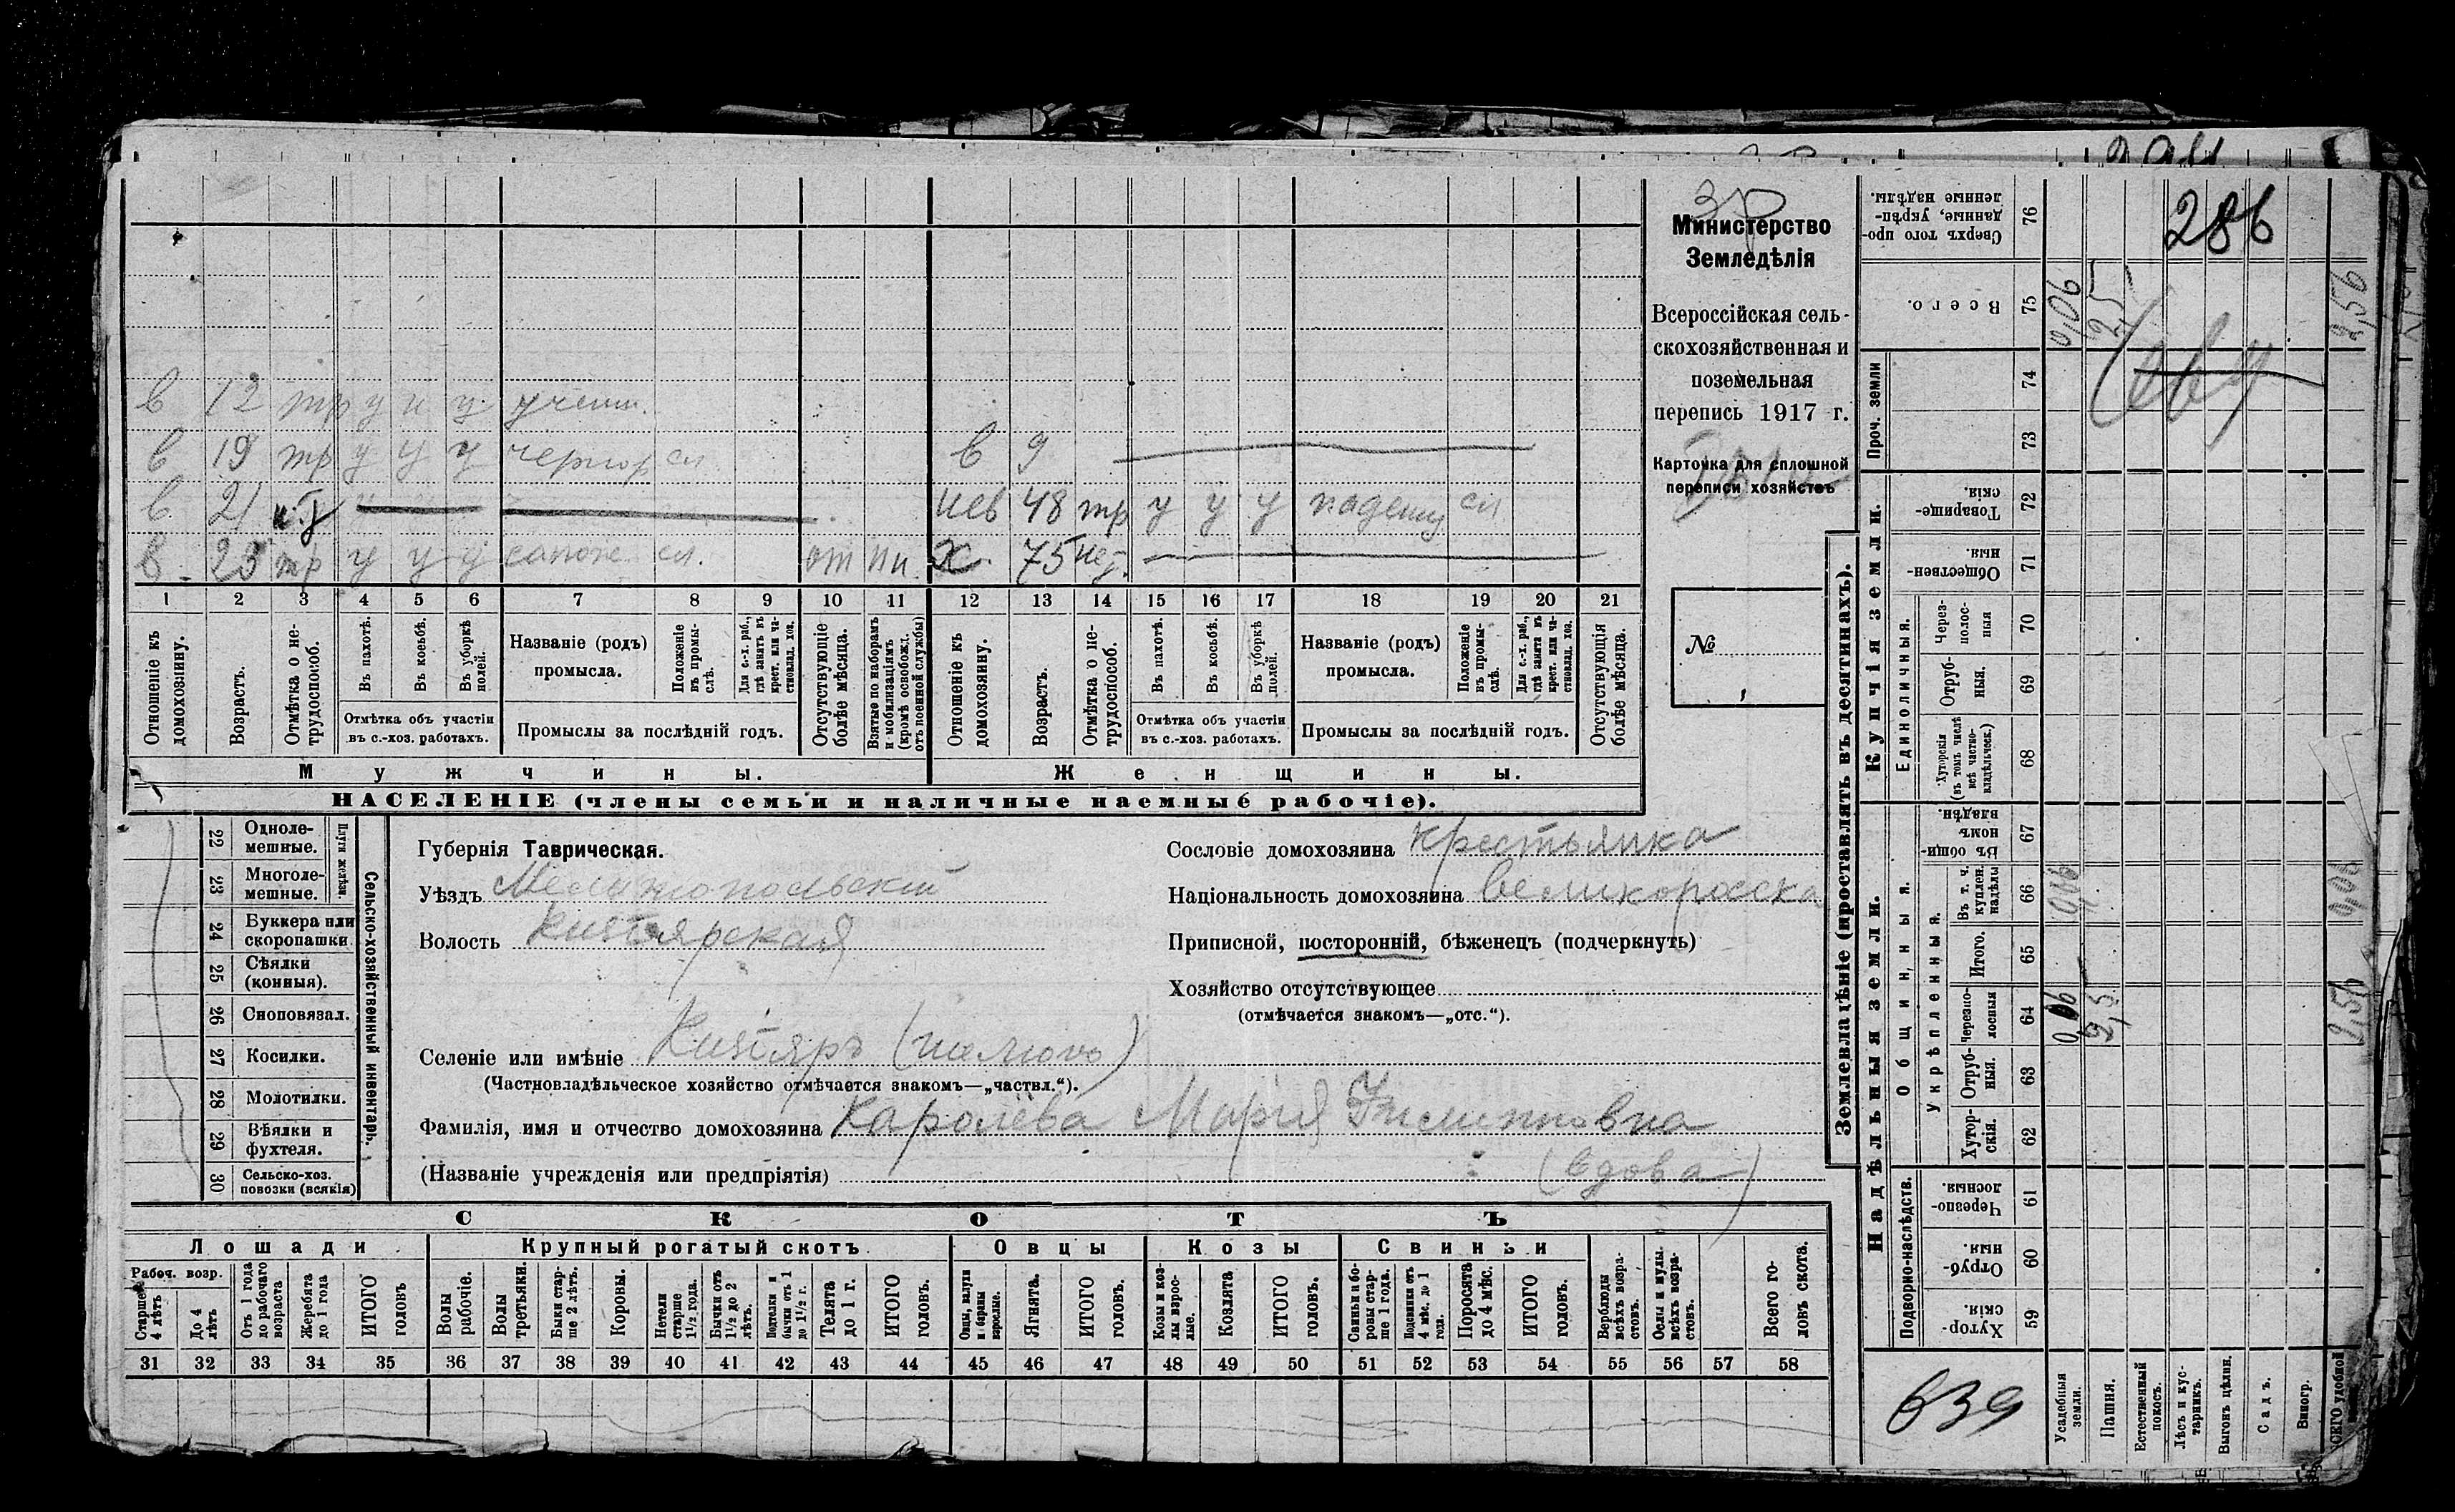 286
зр
Министерство
Земледѣлія
Всероссійская сель-
скохозяйственная и
поземельная
перепись 1917 г.
Карточка для сплошной
переписи хозяйствъ
№
в 12 тр у у у учени.
в 19 тр у у у чернор сл
в 9
в 21
48 тр у у у поденщ сл
в 23 тр у у у сапож. сл.
Х. 75
1 2 3 4 5 6 7 8 9 10 11 12 13 14 15 16 17 18 19 20 21
Отношеніе къ домохозяину.
Возрастъ.
Отмѣтка о не-трудоспособ.
Въ пахотѣ.
Въ косьбѣ.
Въ уборкѣ полей.
Отмѣтка объ участіи
въ с.-хоз. работахъ.
Названіе (родъ)
промысла.
Положеніе въ промы-слѣ.
Для с.-х. раб., гдѣ занятъ въ крест. или ча-стновлад. хоз.
Промыслы за послѣдній годъ.
Отсутствующіе болѣе мѣсяца.
Взятые по наборамъ и мобилизаціямъ (кромѣ освобожд. отъ военной службы)
Отношеніе къ домохозяину.
Возрастъ.
Отмѣтка о не-трудоспособ.
Въ пахотѣ.
Въ косьбѣ.
Въ уборкѣ полей.
Отмѣтка объ участіи
въ с.-хоз. работахъ.
Названіе (родъ)
промысла.
Положеніе въ промы-слѣ.
Для с.-х. раб., гдѣ занята въ крест. или ча-стновлад. хоз.
Промыслы за послѣдній годъ.
Отсутствующія болѣе мѣсяца.
Мужчины.
Женщины.
НАСЕЛЕНІЕ (члены семьи и наличные наемные рабочіе).
Сельско-хозяйственный инвентарь.
Плуги желѣзн.
22 Одноле-мешные.
23 Многоле-мешные.
24 Буккера или скоропашки
25 Сѣялки (конныя).
26 Сноповязал.
27 Косилки.
28 Молотилки.
29 Вѣялки и фухтеля.
30 Сельско-хоз. повозки (всякія)
Губернія Таврическая.
Уѣздъ Мелитопольскій
Волость
Селеніе или имѣніе
(Частновладѣльческое хозяйство отмѣчается знакомъ—„частвл.“).
Фамилія, имя и отчество домохозяина Каролёва Марія
(Названіе учрежденія или предпріятія) (вдова)
Сословіе домохозяина крестьянка
Національность домохозяина великоросска
Приписной, посторонній, бѣженецъ (подчеркнуть)
Хозяйство отсутствующее
(отмѣчается знакомъ—„отс.“).
СКОТЪ
Лошади
Крупный рогатый скотъ
Овцы
Козы
Свиньи
Рабоч. возр.
Старше 4 лѣтъ
До 4 лѣтъ
Отъ 1 года до рабочаго возраста
Жеребята до 1 года
ИТОГО головъ
Волы рабочіе.
Волы третьяки.
Быки стар-ше 2 лѣтъ.
Коровы.
Нетели старше 1½ года.
Бычки отъ 1½ до 2 лѣтъ.
Подтелки и бычки отъ 1 до 1½ г.
Телята до 1 г.
ИТОГО головъ.
Овцы, валухи и бараны взрослые.
Ягнята.
ИТОГО головъ.
Козы и коз-лы взрос-лые.
Козлята
ИТОГО головъ.
Свиньи и бо-ровы стар-ше 1 года.
Подсвинки отъ 4 мѣс. до 1 года.
Поросята до 4 мѣс.
ИТОГО головъ.
Верблюды всѣхъ возра-стовъ.
Ослы и мулы всѣхъ возра-стовъ.
Всего го-ловъ скота.
31 32 33 34 35 36 37 38 39 40 41 42 43 44 45 46 47 48 49 50 51 52 53 54 55 56 57 58
Землевладѣніе (проставлять въ десятинахъ).
Сверхъ того про-данные, укрѣп-ленные надѣлы. 76
Всего. 75 0,06 2,5 2,56
Проч. земли 74
73
Купчія земли.
Товарище-скія. 72
Обществен-ныя. 71
Единоличныя.
Через-полос-ныя 70
Отруб-ныя. 69
Хуторскія (въ томъ числѣ всѣ частно-владѣльческ.) 68
Надѣльныя земли.
Общинныя.
Въ общин-номъ владѣн. 67
Укрѣпленныя.
Въ т. ч. куплен. надѣлы 66 0,06 0,06
Итого. 65
Черезпо-лосныя 64 0,06 2,5 2,56
Отруб-ныя. 63
Хутор-скія. 62
Подворно-наслѣдств.
Черезпо-лосныя. 61
Отруб-ныя. 60
Хутор-скія. 59
639
Усадебныя земли.
Пашня.
Естественный покосъ.
Лѣсъ и кус-тарникъ.
Выгонъ цѣлин.
Садъ.
Виногр.